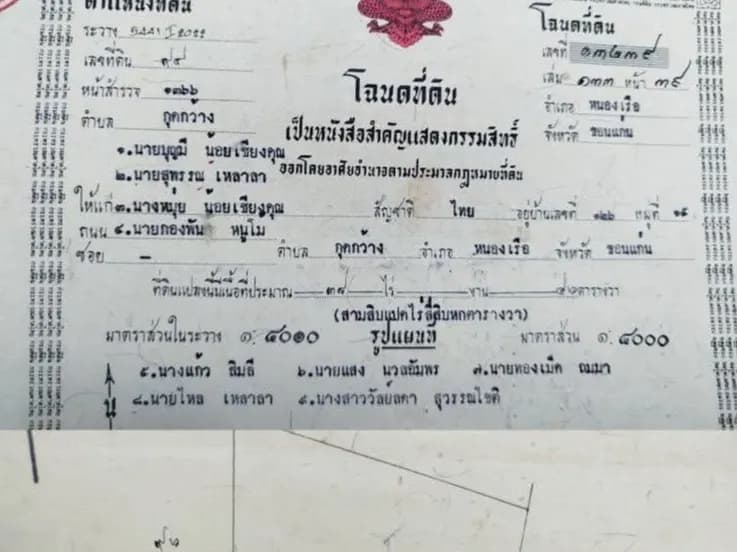 ตำแหน่งที่ดิน
ระวาง 5441 I 2022
เลขที่ดิน ๙๔
หน้าสำรวจ ๑๓๖๖
ตำบล กุดกว้าง
โฉนดที่ดิน
เลขที่ ๑๓๒๓๙
เล่ม ๑๓๓ หน้า ๓๙
อำเภอ หนองเรือ
จังหวัด ขอนแก่น
โฉนดที่ดิน
เป็นหนังสือสำคัญแสดงกรรมสิทธิ์
ออกโดยอาศัยอำนาจตามประมวลกฎหมายที่ดิน
๑.นายบุญมี น้อยเชียงคุณ
๒.นายสุพรรณ์ เหลาลา
ให้แก่ ๓.นางหมุ่ย น้อยเชียงคุณ สัญชาติ ไทย อยู่บ้านเลขที่ ๑๒๖ หมู่ที่ ๑๕
ถนน ๔.นายกองพัน หนูโม
ซอย – ตำบล กุดกว้าง อำเภอ หนองเรือ จังหวัด ขอนแก่น
ที่ดินแปลงนี้มีเนื้อที่ประมาณ ๓๘ ไร่ งาน ๔๖ ตารางวา
(สามสิบแปดไร่สี่สิบหกตารางวา)
มาตราส่วนในระวาง ๑: ๔๐๐๐ รูปแผนที่ มาตราส่วน ๑: ๔๐๐๐
๕.นางแก้ว สิมลี ๖.นายแสง นวลอัมพร ๗.นายทองเม็ด ถมมา
น ๘.นายไหล เหลาลา ๙.นางสาววัลย์ลดา สุวรรณโชติ
๙๖